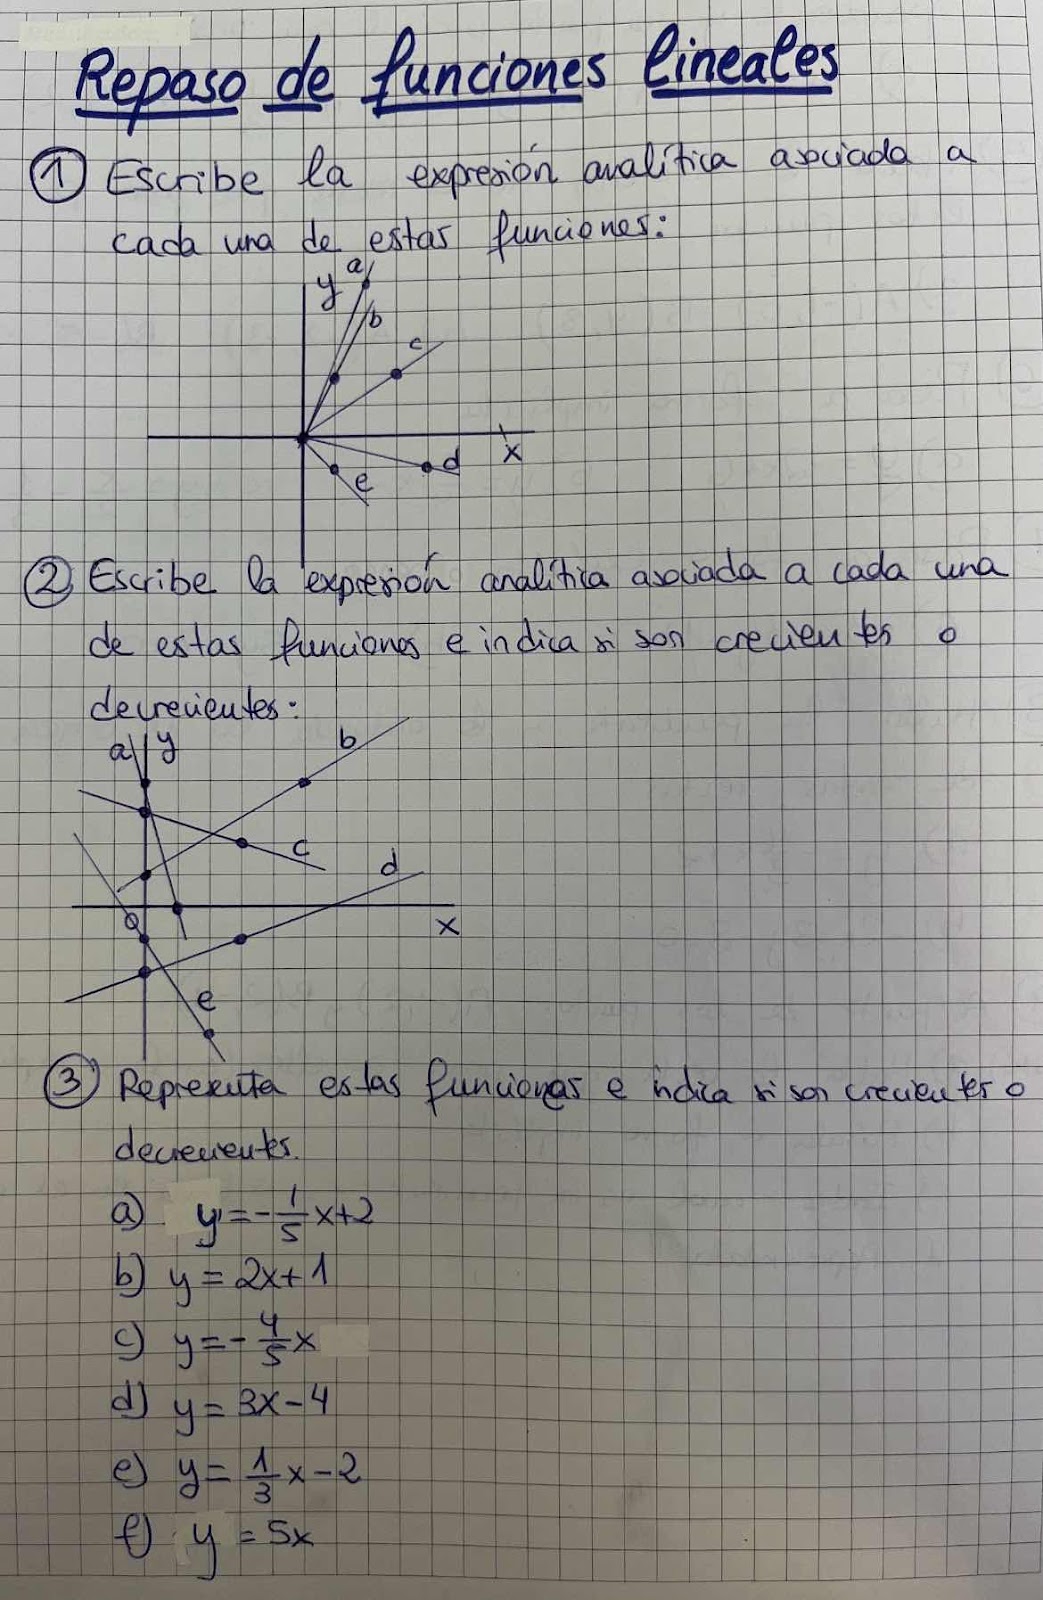 Repaso de funciones lineales
① Escribe la expresión analítica asociada a
cada una de estas funciones:
a
y
b
c
d
x
e
② Escribe la expresión analítica asociada a cada una
de estas funciones e indica si son crecientes o
decrecientes:
a y b
c
d
O
x
e
③ Representa estas funciones e indica si son crecientes o
decrecientes.
a) y = -1/5 x + 2
b) y = 2x + 1
c) y = -4/5 x
d) y = 3x - 4
e) y = 1/3 x - 2
f) y = 5x